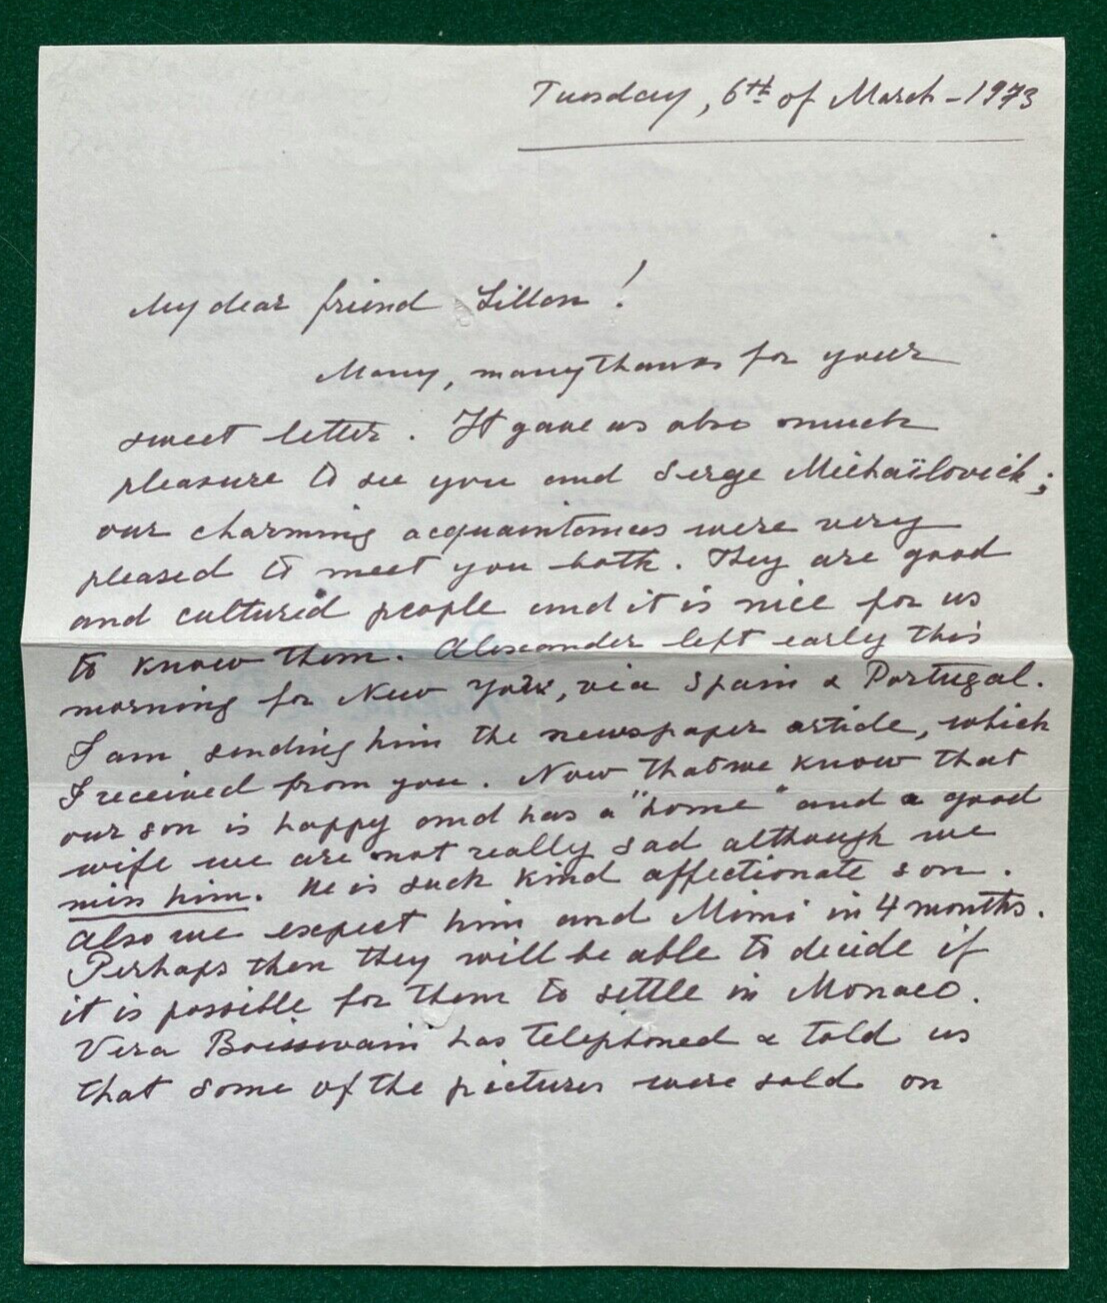 Tuesday, 6th of March - 1973
My dear friend Lillan!
Many, many thanks for your
sweet letter. It gave us also much
pleasure to see you and Serge Michaïlovich;
our charming acquaintances were very
pleased to meet you both. They are good
and cultured people and it is nice for us
to know them. Alexander left early this
morning for New York, via Spain & Portugal.
I am sending him the newspaper article, which
I received from you. Now that we know that
our son is happy and has a "home" and a good
wife we are not really sad although we
miss him. He is such kind affectionate son.
Also we expect him and Mimi in 4 months.
Perhaps then they will be able to decide if
it is possible for them to settle in Monaco.
Vera Boissevain has telephoned & told us
that some of the pictures were sold on